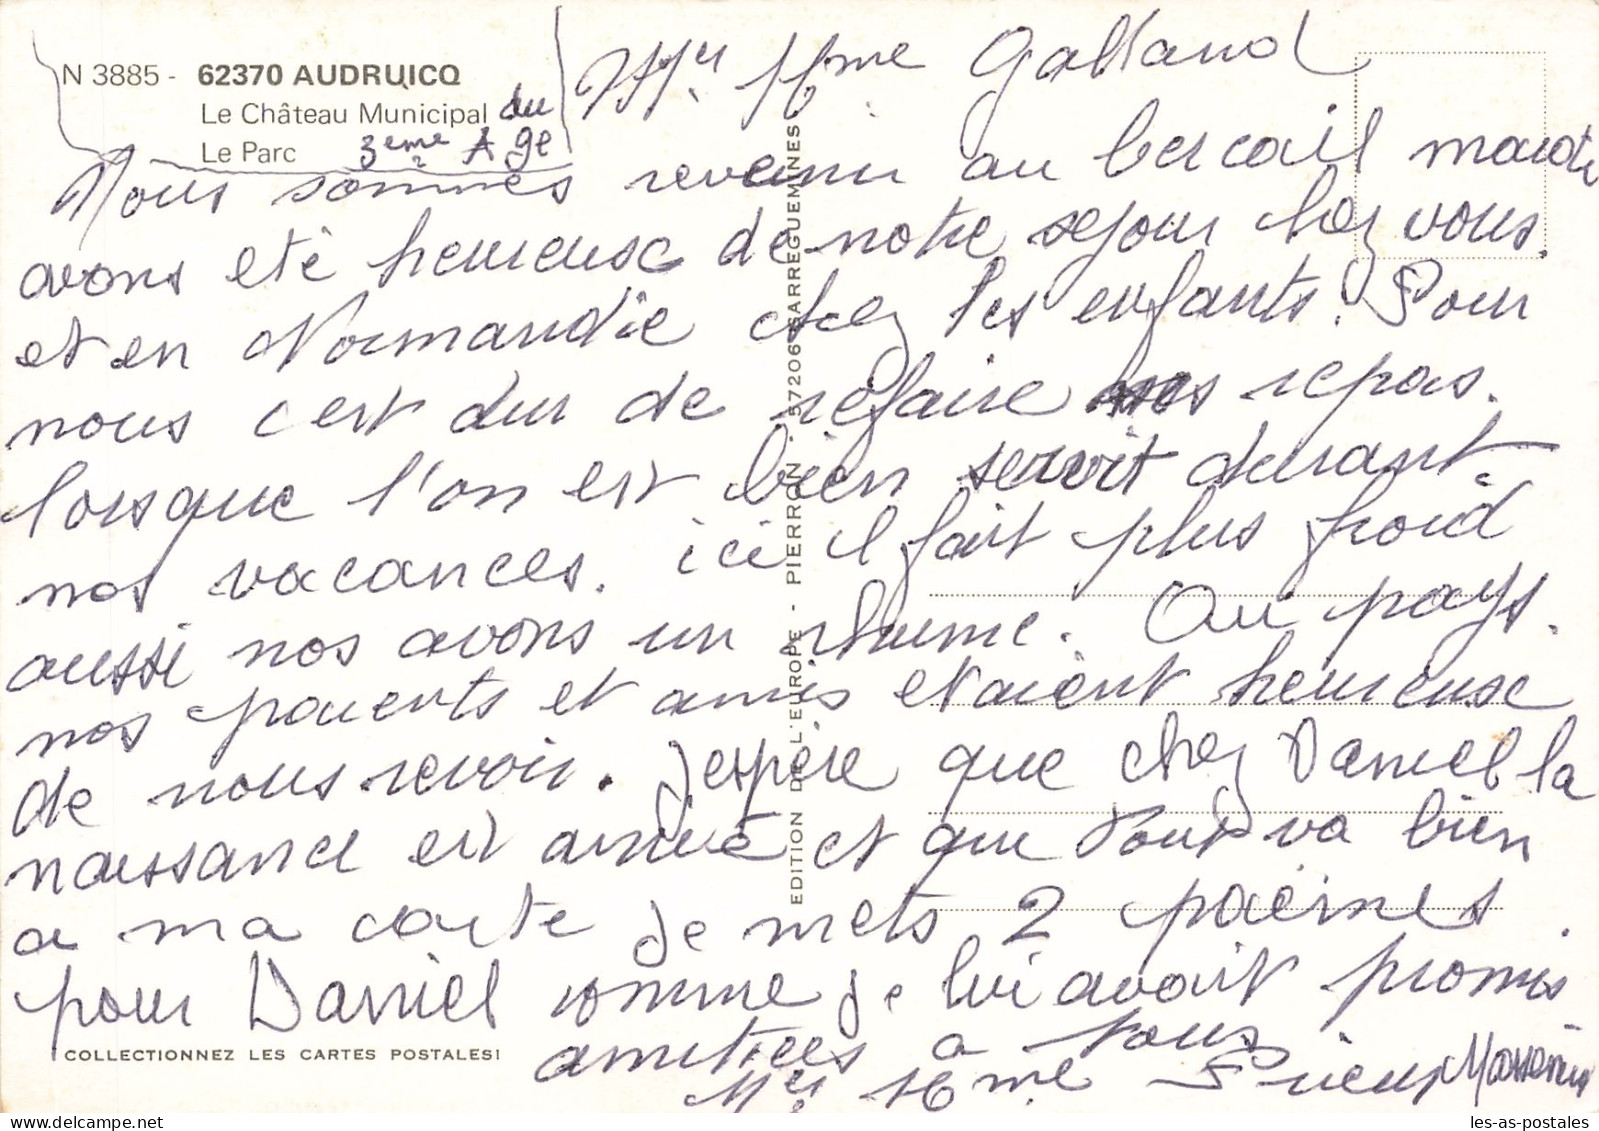 N 3885 - 62370 AUDRUICQ
Le Château Municipal du
Le Parc 3eme Age
Mr Mme Galland
Nous sommes revenu au bercail
avons eté heureuse de notre sejour chez vous.
et en Normandie chez les enfants. Pour
nous c'est dur de refaire nos repas.
lorsque l'on est bien servit durant
nos vacances. ici il fait plus froid
aussi nos avons un rhume. Au pays.
nos parents et amis etaient heureuse
de nous revoir. J'espère que chez Daniel la
naissance est arrivé et que tout va bien
a ma carte je mets 2 paèmes.
pour Daniel comme je lui avait promis
amitiées a tous
Mr Mme Prieur
COLLECTIONNEZ LES CARTES POSTALES!
EDITION DE L'EUROPE - PIERRON - 57206 SARREGUEMINES
les-as-postales.com